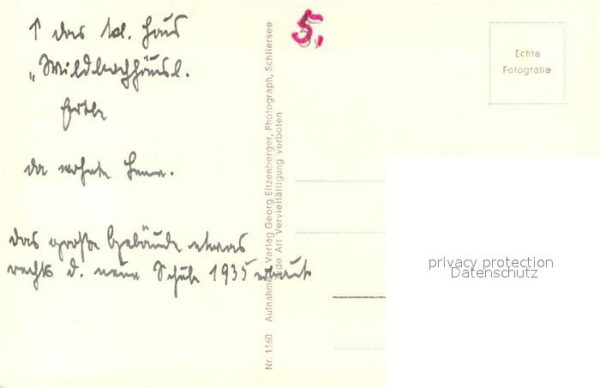 ↑ das kl. Haus
„Wildbachhäusl.
da wohnte
das große Gebäude etwas
rechts d. neue Schule 1935 erbaut
Nr. 1360 Aufnahme u. Verlag Georg Eitzenberger, Photograph, Schliersee
Jede Art Vervielfältigung verboten
5.
Echte
Fotografie
privacy protection
Datenschutz